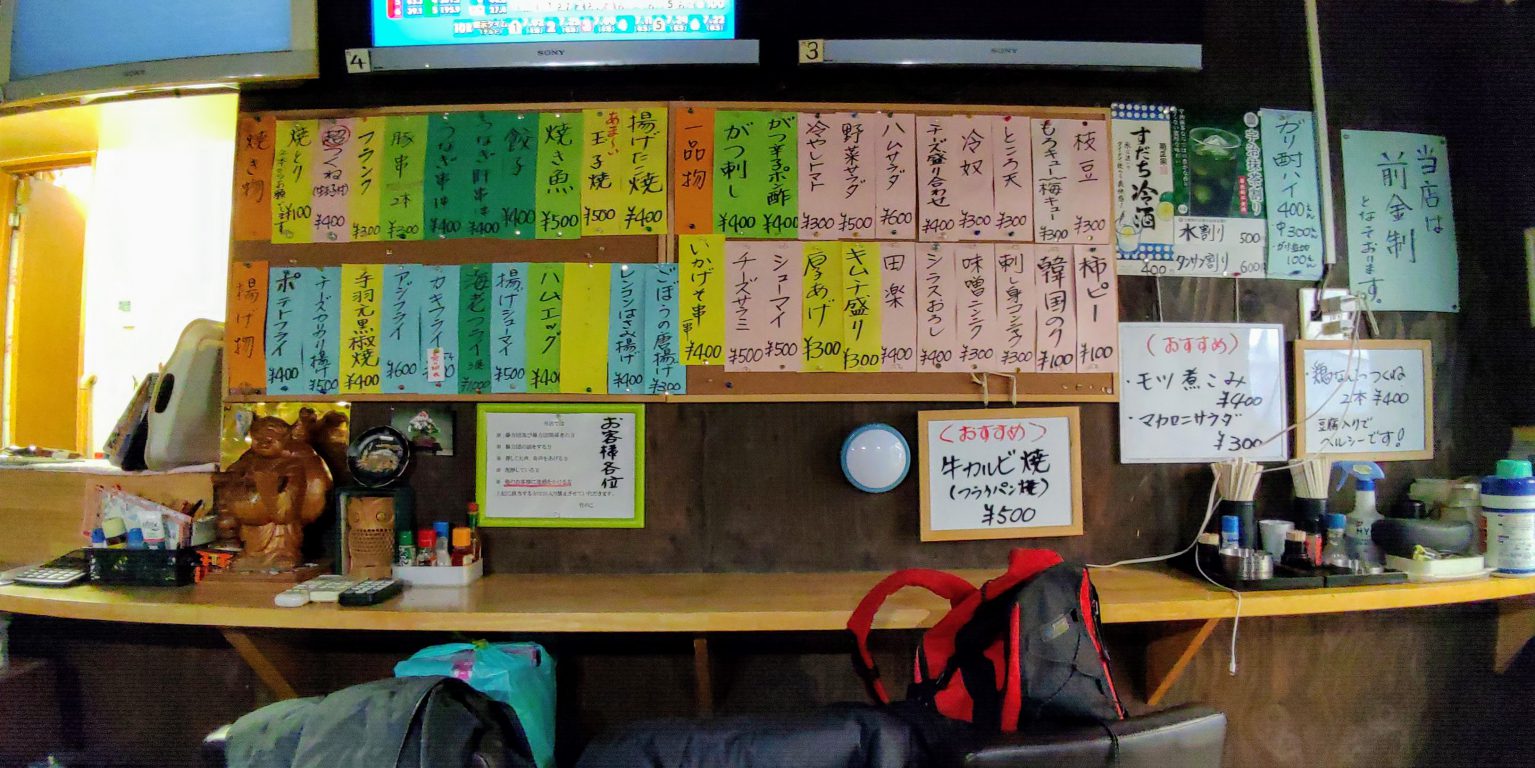 SONY
4
SONY
3
SONY
焼き物
焼とり
¥100
超つくね
¥400
フランク
¥300
豚串
2本
¥300
つなぎ串
¥400
¥400
餃子
¥400
焼き魚
¥500
あまーい
玉子焼
¥500
揚げたこ焼
¥400
一品物
がつ刺し
¥400
がつ辛子ポン酢
¥400
冷やしトマト
¥300
野菜サラダ
¥500
ハムサラダ
¥600
チーズ盛り合わせ
¥400
冷奴
¥300
ところ天
¥300
もろキュー/梅キュー
¥300
枝豆
¥300
揚げ物
ポテトフライ
¥400
チーズカリカリ揚げ
¥500
手羽元黒椒焼
¥400
アジフライ
¥600
カキフライ
海老フライ
3本
¥1000
揚げシューマイ
¥500
ハムエッグ
¥400
レンコンはさみ揚げ
¥400
ごぼうの唐揚げ
¥300
いかげそ串
¥400
チーズサラミ
¥500
シューマイ
¥500
厚あげ
¥300
キムチ盛り
¥300
田楽
¥400
シラスおろし
¥400
味噌ニンニク
¥300
刺し身コンニャク
¥300
韓国のり
¥100
柿ピー
¥100
すだち冷酒
400
水割り 500
タンサン割り 600
ガリ酎ハイ
400えん
中300えん
100えん
当店は
前金制
となっております。
(おすすめ)
・モツ煮こみ
¥400
・マカロニサラダ
¥300
・鶏なんこつつくね
2本 ¥400
豆腐入りで
ヘルシーです!
(おすすめ)
牛カルビ焼
(フライパン焼)
¥500
お客様各位